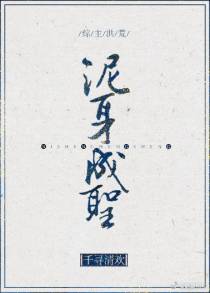 /综/主/洪/荒/
泥身成聖
NISHENCHENGSHENG
千寻清欢